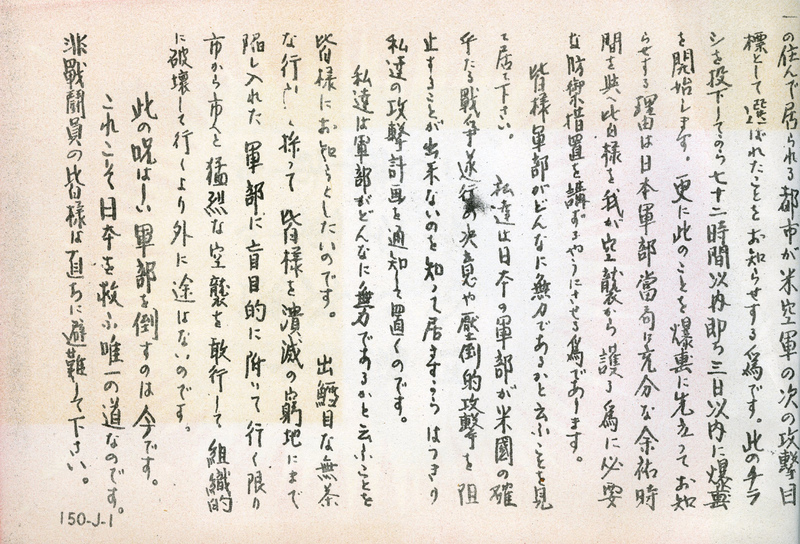 の住んで居られる都市が米空軍の次の攻撃目
標として選ばれたことをお知らせする為です。此のチラ
シを投下してから七十二時間以内即ち三日以内に爆裏
を開始します。更に此のことを爆裏に先立つてお知
らせする理由は日本軍部當局に充分な余祐時
間を與へ皆様を我が空襲から護る為に必要
な防禦措置を講ずるやうにさせる為であります。
皆様軍部がどんなに無力であるかと云ふことを見
て居て下さい。 私達は日本の軍部が米國の確
乎たる戦争遂行の決意や壓倒的攻撃を阻
止することが出来ないのを知つて居ますからはつきり
私達の攻撃計画を通知して置くのです。
私達は軍部がどんなに無力であるかと云ふことを
皆様にお知らせしたいのです。 出鱈目な無茶
な行 採つて 皆様を潰滅の窮地にまで
陥し入れた 軍部に盲目的に附いて行く限り
市から市へと猛烈な空襲を敢行して 組織的
に破壊して行くより外に途はないのです。
此の呪はしい軍部を倒すのは今です。
これこそ日本を救ふ唯一の道なのです。
非戰鬪員の皆様は直ちに避難して下さい。
150-J-1